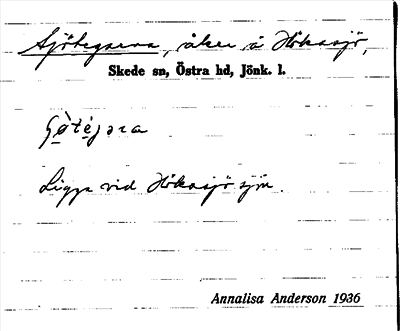 Sjötegarna, åker å Hökasjö,
Skede sn, Östra hd, Jönk. l.
Ligga vid Hökasjö sjön.
Annalisa Anderson 1936